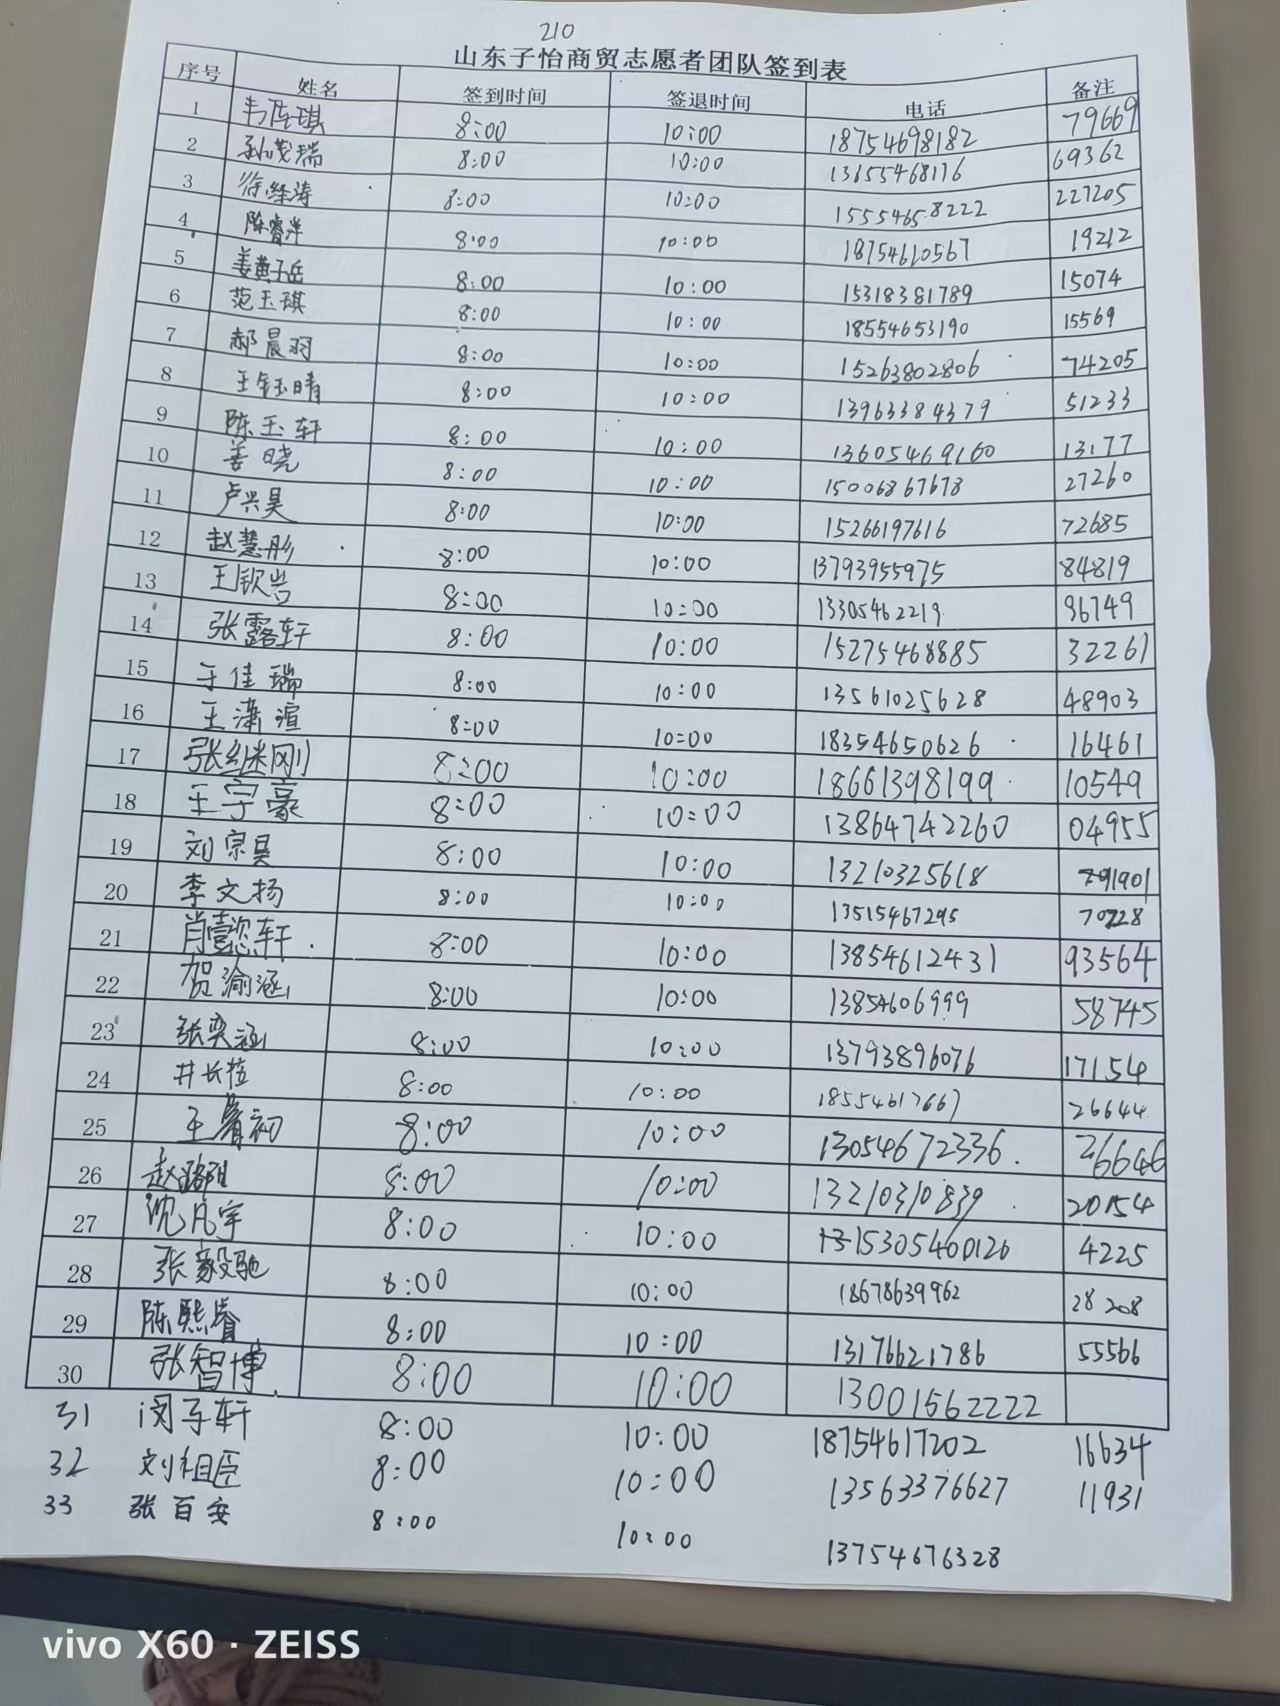 210
山东子怡商贸志愿者团队签到表
序号 姓名 签到时间 签退时间 电话 备注
1 8:00 10:00 18754698182 79669
2 孙茂瑞 8:00 10:00 13655468176 69362
3 徐绎涛 8:00 10:00 15554658222 227205
4 陈睿洋 8:00 10:00 18754610567 19212
5 姜黄子岳 8:00 10:00 15318381789 15074
6 范玉琪 8:00 10:00 18554653190 15569
7 郝晨羽 8:00 10:00 15263802806 74205
8 王钰晴 8:00 10:00 13963384379 51233
9 陈玉轩 8:00 10:00 13605469160 13177
10 姜晓 8:00 10:00 15006867673 27260
11 卢兴昊 8:00 10:00 15266197616 72685
12 赵慧彤 8:00 10:00 13793955975 84819
13 王钦岩 8:00 10:00 13305462219 96749
14 张露轩 8:00 10:00 15275468885 32261
15 于佳瑞 8:00 10:00 13561025628 48903
16 王潇渲 8:00 10:00 18354650626 16461
17 张继刚 8:00 10:00 18661398199 10549
18 王宇豪 8:00 10:00 13864742260 04955
19 刘宗昊 8:00 10:00 13210325618 791901
20 李文扬 8:00 10:00 13515467295 70728
21 肖懿轩 8:00 10:00 13854612431 93564
22 贺渝涵 8:00 10:00 13854606999 58745
23 张奕涵 8:00 10:00 13793896076 17154
24 井长 8:00 10:00 18554617667 26644
25 王 初 8:00 10:00 13054672336 26646
26 赵璐阳 8:00 10:00 13210310839 20154
27 沈凡宇 8:00 10:00 15305460126 4225
28 张毅驰 8:00 10:00 18678639962 28208
29 陈熙睿 8:00 10:00 13176621786 55566
30 张智博 8:00 10:00 13001562222
31 闵子轩 8:00 10:00 18754617202 16634
32 刘祖臣 8:00 10:00 13563376627 11931
33 张百安 8:00 10:00 13754676328
vivo X60 · ZEISS